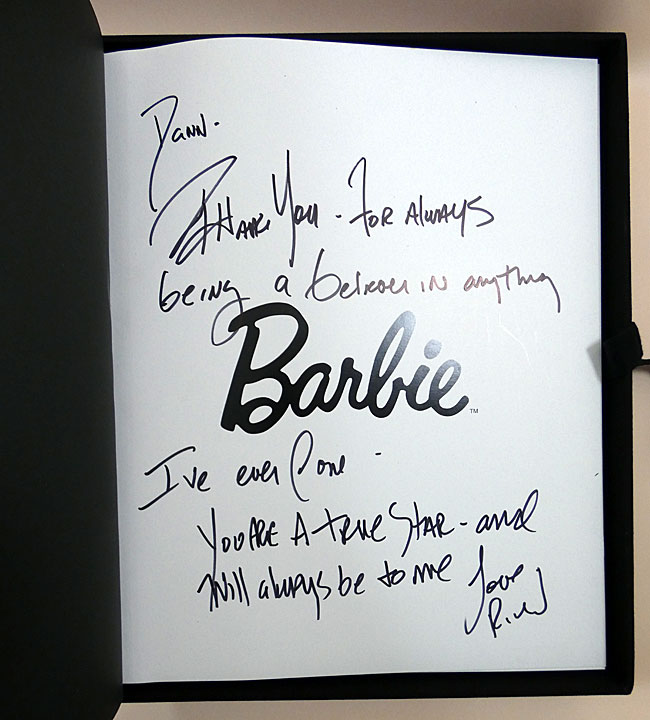 Dann.
Thank You - For Always
being a believer in anything
Barbie™
I've ever Done -
You ARE A true STAR - and
Will always be to me Love